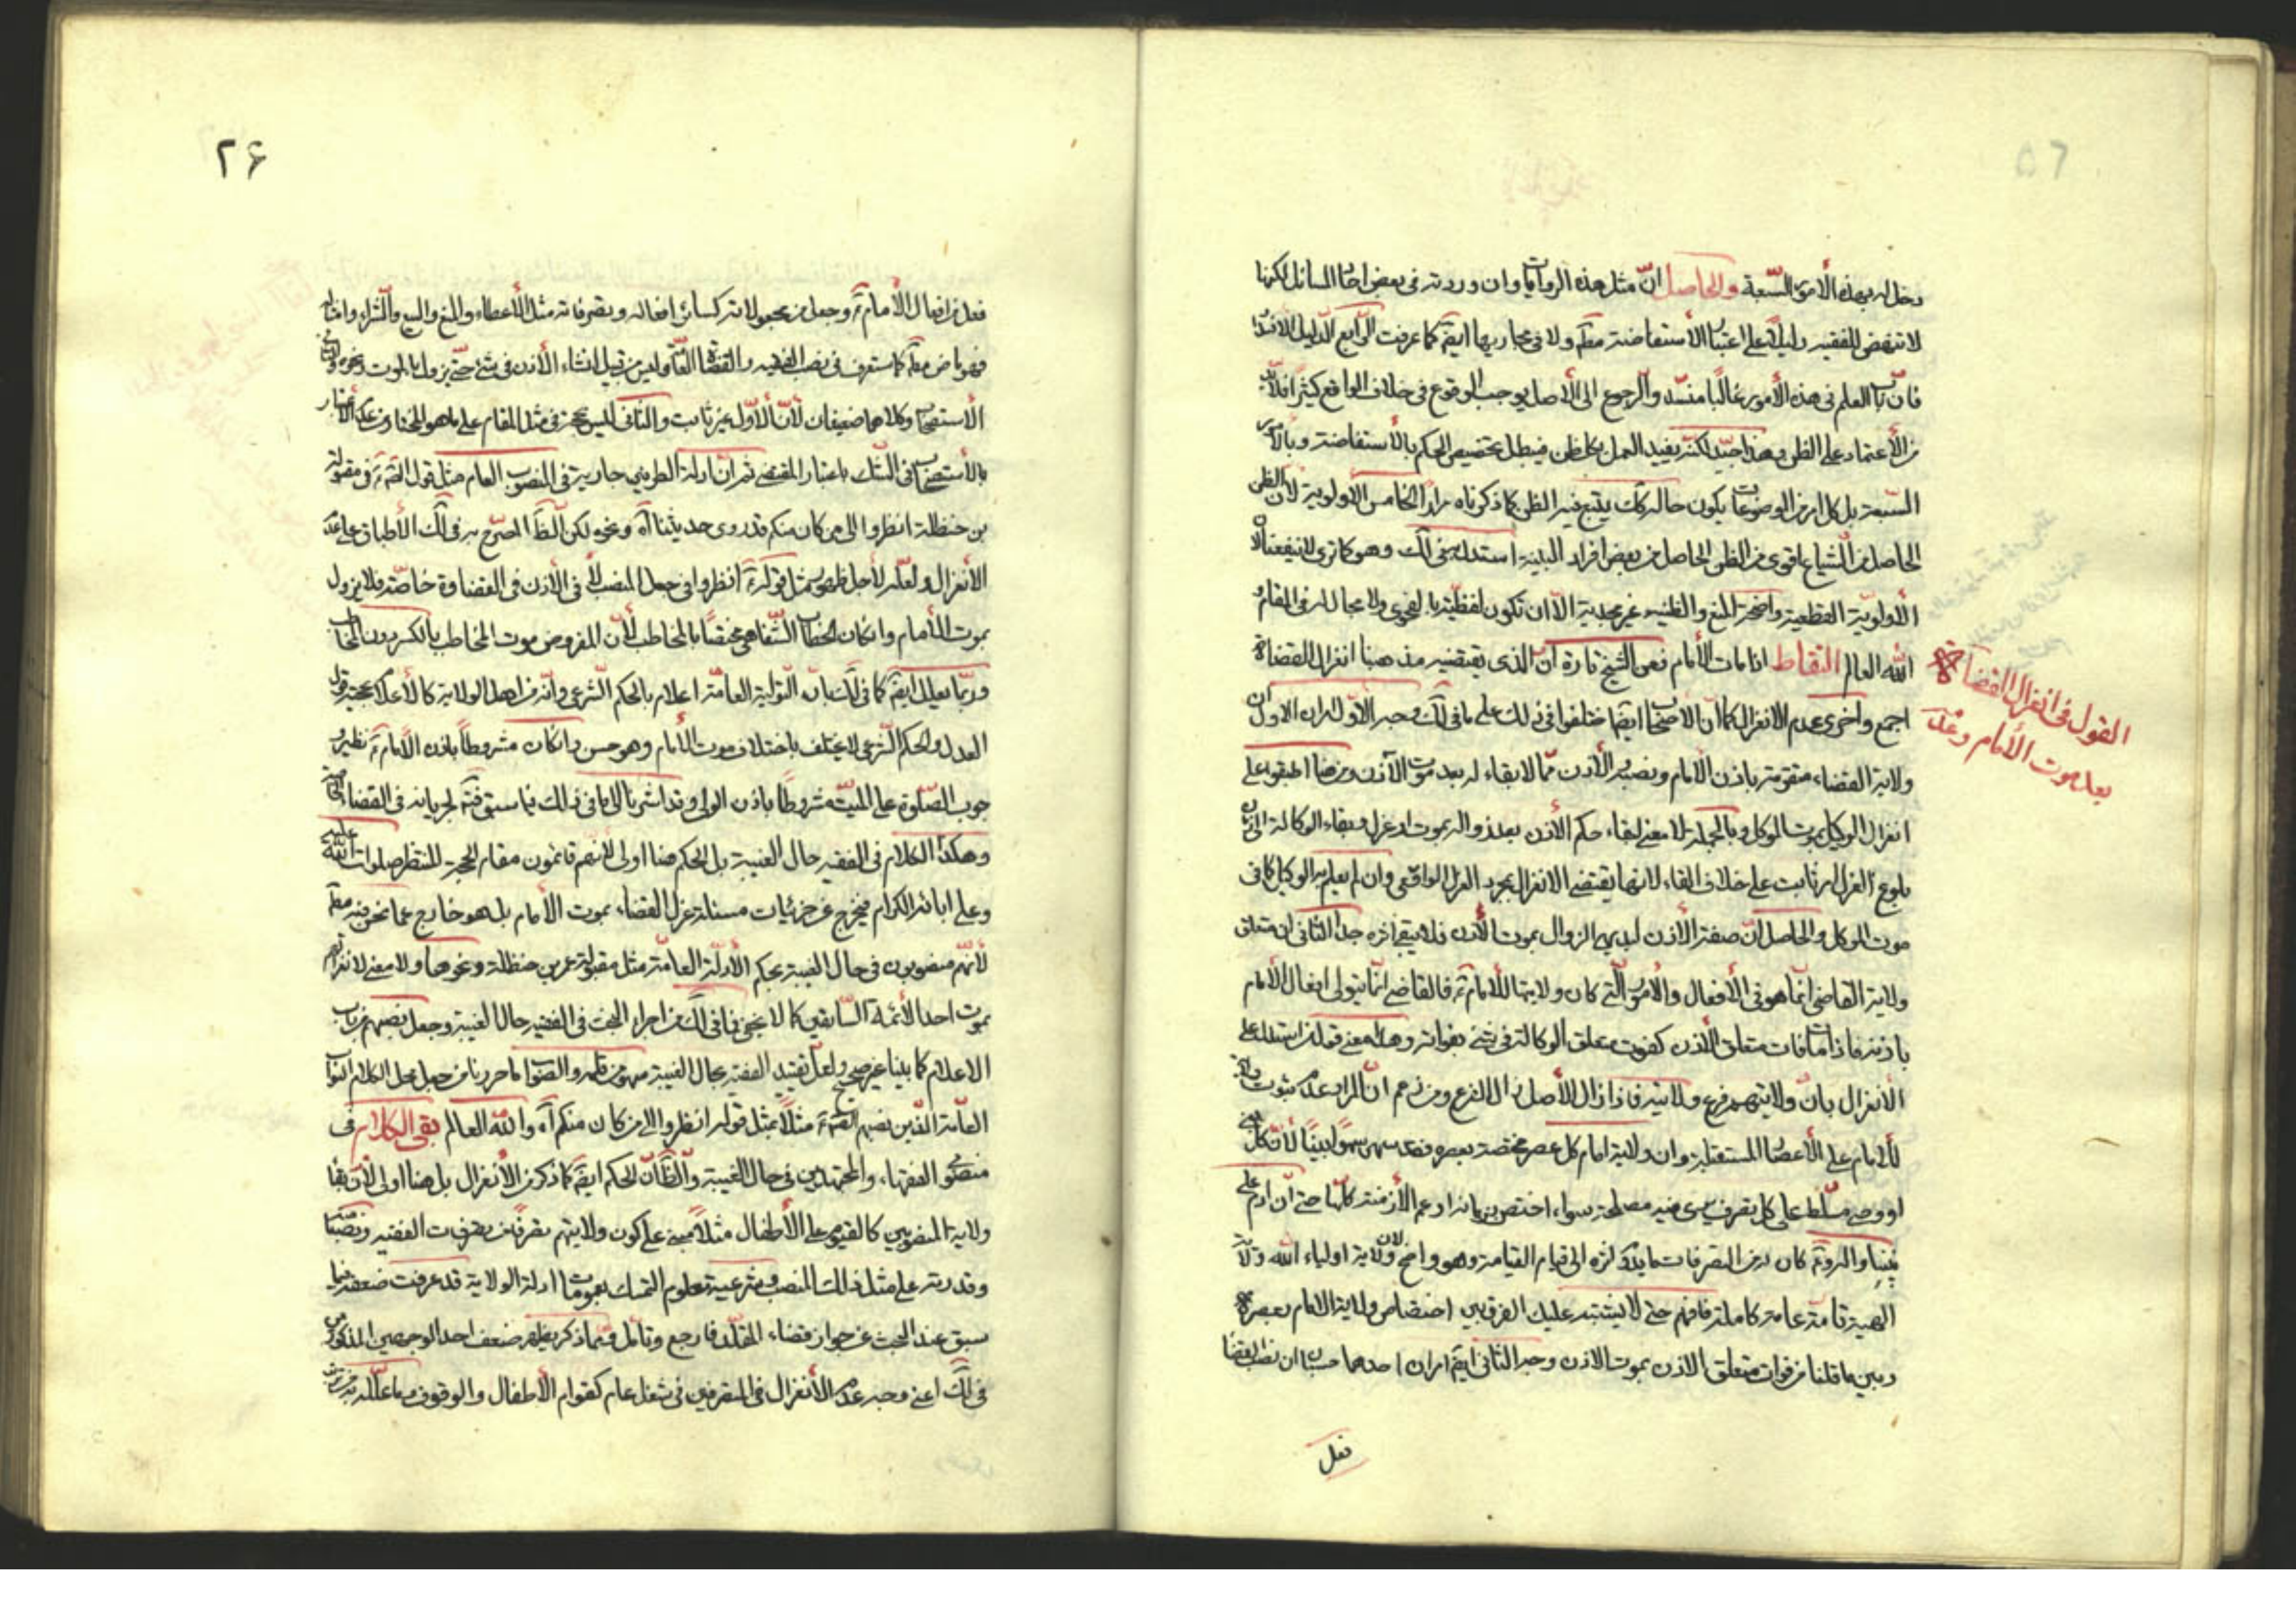 دخل له بهذه الأمور السّبعة والحاصل انّ مثل هذه الروايات وان وردت فى بعض احاد المسائل لكنها
لا تنهض للفقيه دليلا على اعتبار الأستفاضة مطم ولا فى مجاريها ايضم كما عرفت الرّابع الدليل الانسداد
فانّ باب العلم فى هذه الأمور غالبًا منسدّ والرجوع الى الأصل يوجب الوقوع فى خلاف الواقع كثيرًا فلا بد
من الأعتماد على الظن وهذا جيّد لكنّه يفيد العمل بكل ظن فيبطل تخصيص الحكم بالأستفاضة وبالأمور
السّبعة بل كل امر من الموضوعات يكون حاله كك يتبع فيه الظن كما ذكرناه مرارًا الخامس الأولوية لأن الظن
الحاصل من الشياع اقوى من الظن الحاصل من بعض افراد البينة استدل به فى لك وهو كما ترى لا ينفعنا لأن
الأولويّة القطعية واضحة المنع والظنية غير مجدية الّا ان تكون لفظيّة بالفحوى ولا مجال له فى المقام و
الله العالم التقاط اذا مات الأمام فعن الشيخ تارة انّ الذى يقتضيه مذهبنا انعزال القضاة
اجمع واخرى عدم الانعزال كما ان الأصحاب ايضًا اختلفوا فى ذلك على ما فى لك وجه الأوّل امران الاول ان
ولاية القضاء متقومة باذن الأمام ونصبه والأذن ممّا لا بقاء له بعد موت الآذن ومن هنا اطبقوا على
انعزال الوكيل بموت الموكل وبالجملة لا معنى لبقاء حكم الأذن بعد زواله بموت او عزل وبقاء الوكالة الى زمان
بلوغ العزل امر ثابت على خلاف القاعدة لانها يقتضى الانعزال بمجرد العزل الواقعى وان لم يعلم به الوكيل كما فى
موت الموكل والحاصل انّ صفة الأذن لبديهى الزوال بموت الأذن فلا يبقى اثره جدا الثانى ان متعلق
ولاية القاضى انّما هو فى الأفعال والأمور الّتى كان ولايتها للأمام ع فالقاضى انّما يتولى افعال الأمام
باذنه فاذا مات فات متعلق الأذن كفوت متعلق الوكالة فى شئ بفواته وهذا معنى قوله من استدل على
الأنعزال بانّ ولايتهم فرع ولايته فاذا زال الأصل زال الفرع ومن زعم انّ المراد عدم ثبوت ولاية
للأمام على الأعصار المستقبلة وان ولاية امام كل عصر مختصة بعصره فقد سهى سهوًا بيّنًا لأن كل نبى
او وصى مسلّط على كل تصرف يرى فيه مصلحة سواء اختص بزمانه او عم الأزمنة كلّها حتى انّ ادم على
نبينا واله وع كان له من التصرفات ما يبقى اثره الى قيام القيامة وهو واضح لان ولاية اولياء الله ولاية
الهية تامّة عامة كاملة فافهم حتى لا يشتبه عليك الفرق بين اختصاص ولاية الامام بعصره
وبين ما قلنا من فوات متعلق الاذن بموت الاذن وجه الثانى ايضم امران احدهما حسبان ان نصب القضا
فعل
القول فى انعزال القضاة
بعد موت الأمام وعدمه
۲۶
فعل من افعال الأمام ع وجعل من مجعولاته كسائر افعاله وتصرفاته مثل الأعطاء والمنع والبيع والشراء وامثاله
فهو ماض مطم كما ستعرف فى نصب الفقيه والقضاة العامّ وليس من قبيل انشاء الأذن فى شئ حتّى يزول بالموت ونحوه والثانى
الأستصحاب وكلاهما ضعيفان لأنّ الأوّل غير ثابت والثانى ليس بحجّة فى مثل المقام على ما هو المختار من عدم الأعتبار
بالأستصحاب فى الشّك باعتبار المقتضى ثم ان ادلة الطرفين جارية فى المنصوب العام مثل قول الصّم ع فى مقبولة
بن حنظلة انظروا الى من كان منكم قد روى حديثنا آه ونحوه لكن الظّ المصرّح به فى لك الأطباق على عدم
الأنعزال ولعلّه لأجل ظهور مثل قوله ع انظروا فى جعل المنصب لا فى الأذن فى القضاوة خاصّة فلا يزول
بموت الأمام وان كان الخطاب الشّفاهى مختصًا بالمخاطب لأن المفروض موت المخاطب بالكسر دون المخاطب
وربّما يعلل ايضم كما فى لك بانّ التولية العامّة اعلام بالحكم الشّرعى وانّه من اهل الولاية كالأعلام بحجية قول
العدل والحكم الشّرعى لا يختلف باختلاف موت الأمام وهو حسن وان كان مشروطًا باذن الأمام ع نظير و
جوب الصّلوة على الميّت مشروطًا باذن الولى وقد اشرنا الى ما فى ذلك فيما سبق فتم لجريانه فى القضاء الخاص
وهكذا الكلام فى الفقيه حال الغيبة بل الحكم هنا اولى لأنهم قائمون مقام الحجة المنتظر صلوات الله عليه
وعلى ابائه الكرام فيخرج عن جزئيات مسئلة عزل القضاء بموت الأمام بل هو خارج عما نحن فيه مطم
لأنّهم منصوبون فى حال الغيبة بحكم الأدلّة العامّة مثل مقبولة عمر بن حنظلة ونحوها ولا معنى لانعزالهم
بموت احد الأئمّة السّابقين كما لا يخفى فما فى لك من اجراء البحث فى الفقيه حال الغيبة وجعل نصبهم من باب
الاعلام كما بينا غير صحيح ولعلّ تقييد الفقيه بحال الغيبة سهو من قلمه والصّواب ما حررنا من جعل محل الكلام النواب
العامّة الّذين نصبهم الصّم ع مثلًا بمثل قوله انظروا الى من كان منكم آه والله العالم بقى الكلام فى
منصوبى الفقهاء والمجتهدين فى حال الغيبة والظّ انّ الحكم ايضم كما ذكر من الأنعزال بل هنا اولى لأن بقاء
ولاية المنصوبين كالقيم على الأطفال مثلًا مبنى على كون ولايتهم تصرفًا من تصرفات الفقيه ونصبًا منه
وقدرته على مثل ذلك المنصب وشرعيته معلوم التمسك بعمومات ادلة الولاية قد عرفت ضعفه فيما
سبق عند البحث عن جواز قضاء المقلّد فارجع وتامّل وممّا ذكر يظهر ضعف احد الوجهين المذكورين
فى لك اعنى وجه عدم الأنعزال فى المتصرفين فى شغل عام كقوام الأطفال والوقوف معا علّله به من ترتب